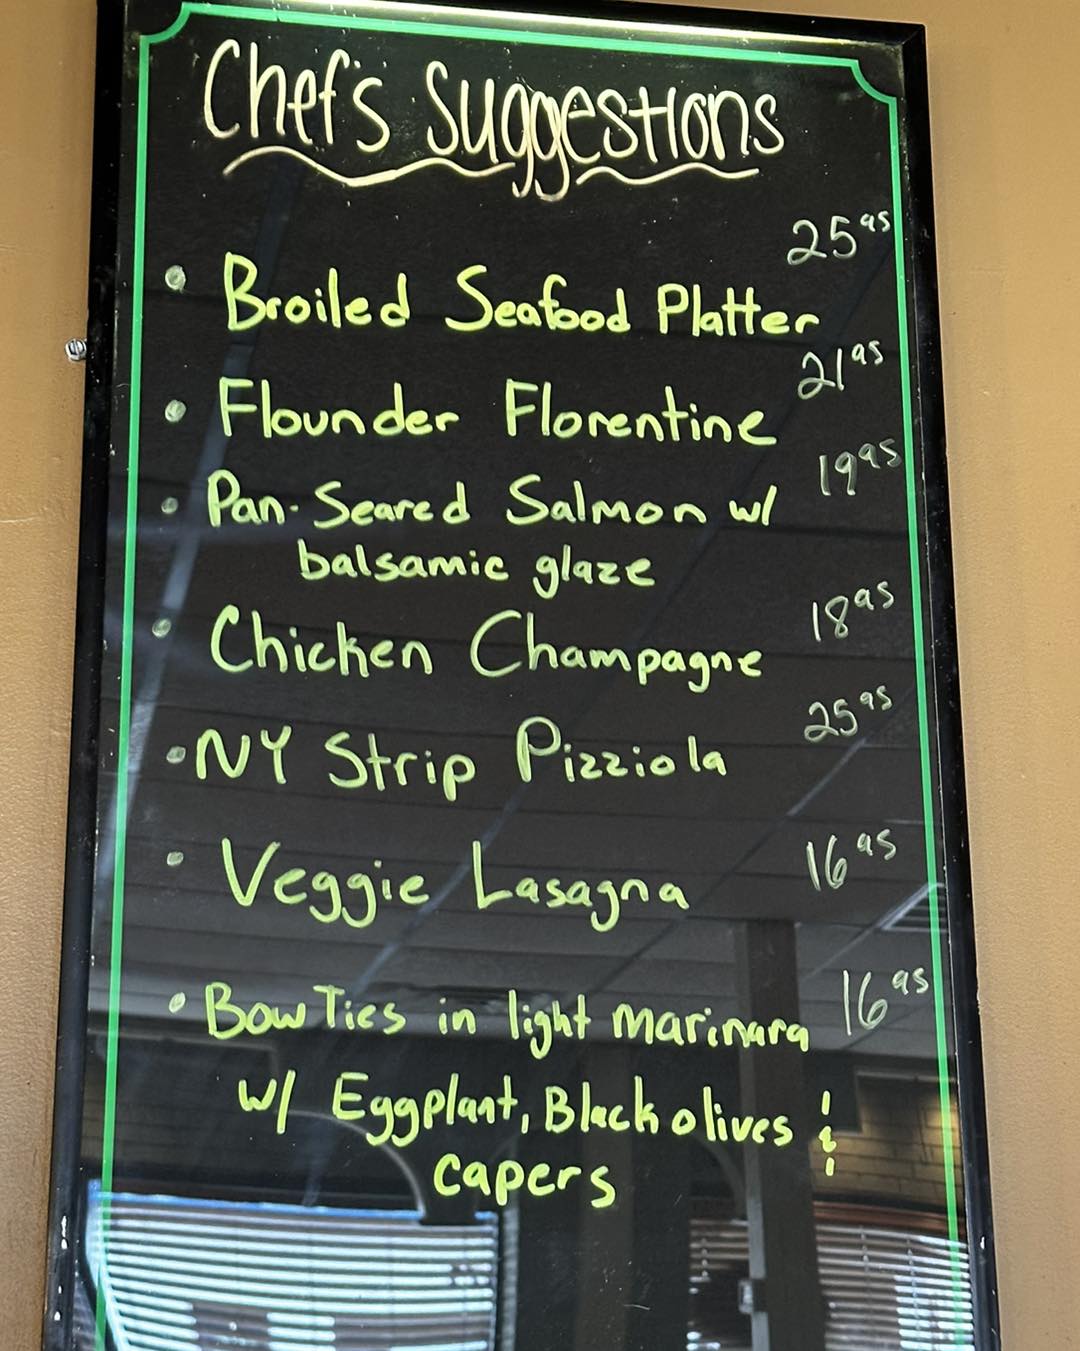 Chef's Suggestions
25 95
• Broiled Seafood Platter
21 95
• Flounder Florentine
19 95
• Pan-Seared Salmon w/
balsamic glaze
18 95
• Chicken Champagne
25 95
• NY Strip Pizziola
• Veggie Lasagna 16 95
• Bow Ties in light marinara 16 95
w/ Eggplant, Black olives &
capers